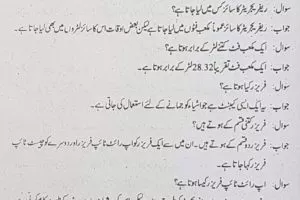 سوال: ریفریجریٹر کا سائز کس میں لیا جاتا ہے؟
جواب: ریفریجریٹر کا سائز عموماً مکعب فٹوں میں لیا جاتا ہے لیکن بعض اوقات اس کا سائز لٹروں میں بھی لیا جاتا ہے۔
سوال: ایک مکعب فٹ کتنے لٹر کے برابر ہوتا ہے؟
جواب: ایک مکعب فٹ تقریباً 28.32 لٹر کے برابر ہوتا ہے۔
سوال: فریزر کیا ہوتا ہے؟
جواب: یہ ایک ایسی کیبنٹ ہے جو اشیاء کو جمانے کے لئے استعمال کی جاتی ہے۔
سوال: فریزر کتنی قسم کے ہوتے ہیں؟
جواب: فریزر دو قسم کے ہوتے ہیں۔ ان میں سے ایک فریزر کو اپ رائٹ ٹائپ فریزر اور دوسرے کو چیسٹ ٹائپ
فریزر کہا جاتا ہے۔
سوال: اپ رائٹ ٹائپ فریزر کیسا ہوتا ہے؟